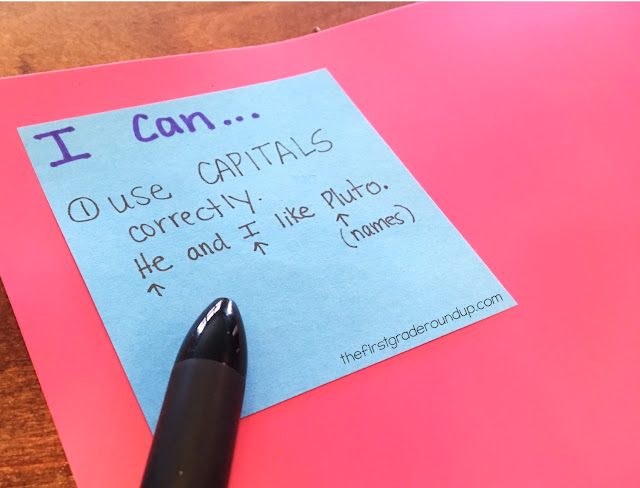 I can...
① use CAPITALS
correctly.
He and I like Pluto.
↑ ↑ ↑
(names)
thefirstgraderoundup.com